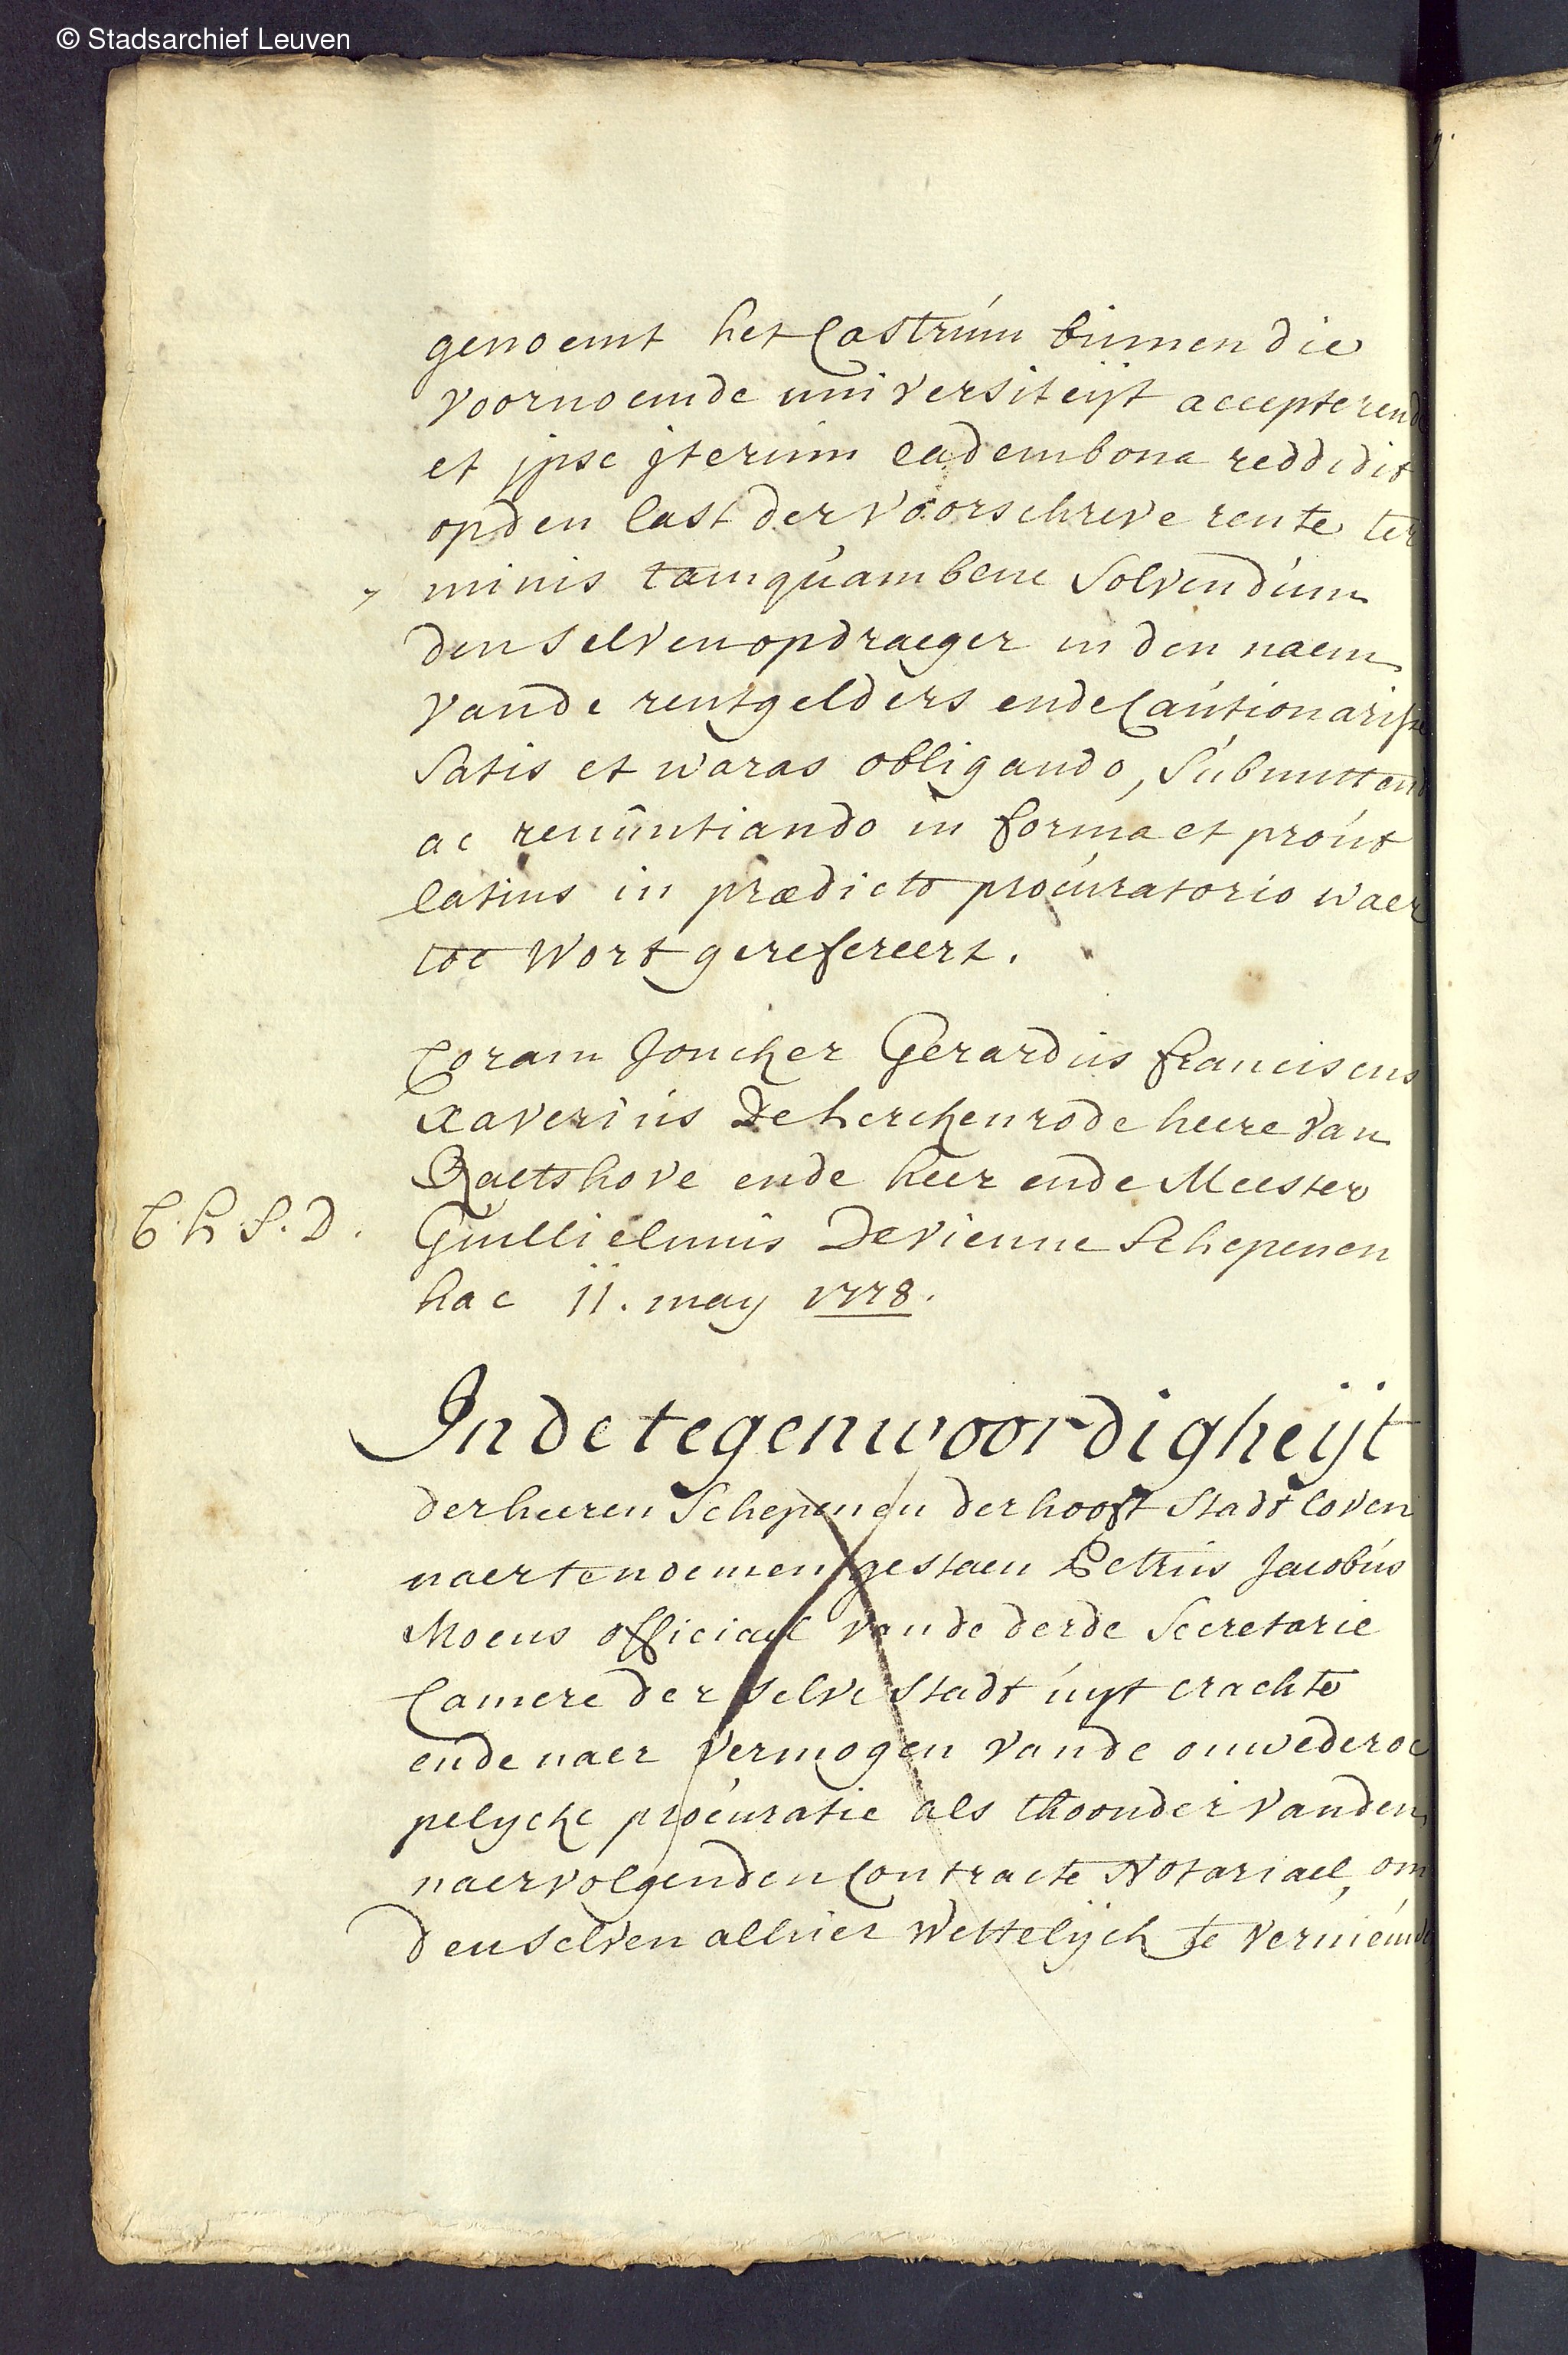 © Stadsarchief Leuven
genoemt het Castrúm binnen die
voornoemde universiteijt accepterende
et jpse jterúm eadem bona reddidit
op den last der voorschreve rente ter
minis tamqúam bene solvendúm
den selven opdraeger in den naem
vande rentgelders ende Caútionarisse
satis et waras obligando, súbmittend
ac renúntiando in forma et proút
latius in prædicto procúratorio waer
toe wort gerefereert.
Coram Joncker Gerardús franciscus
xaveriús De herckenrode heere van
Raetshove ende heer ende Meester
C. h. S. D.
Guilliélmús Devienne Schepenen
hac 11. may 1778.
In de tegenwoordigheijt
der heeren Schepenen der hooft stadt loven
naertendemen gestaen Petrús Jacobús
Moens officiael vande derde Secretarie
Camere der selve stadt úijt crachte
ende naer vermogen vande onwederoe
pelycke procúratie als thoonder vanden
naervolgenden Contracte Notariael, om
den selven alhier wettelijck te vernieúwe